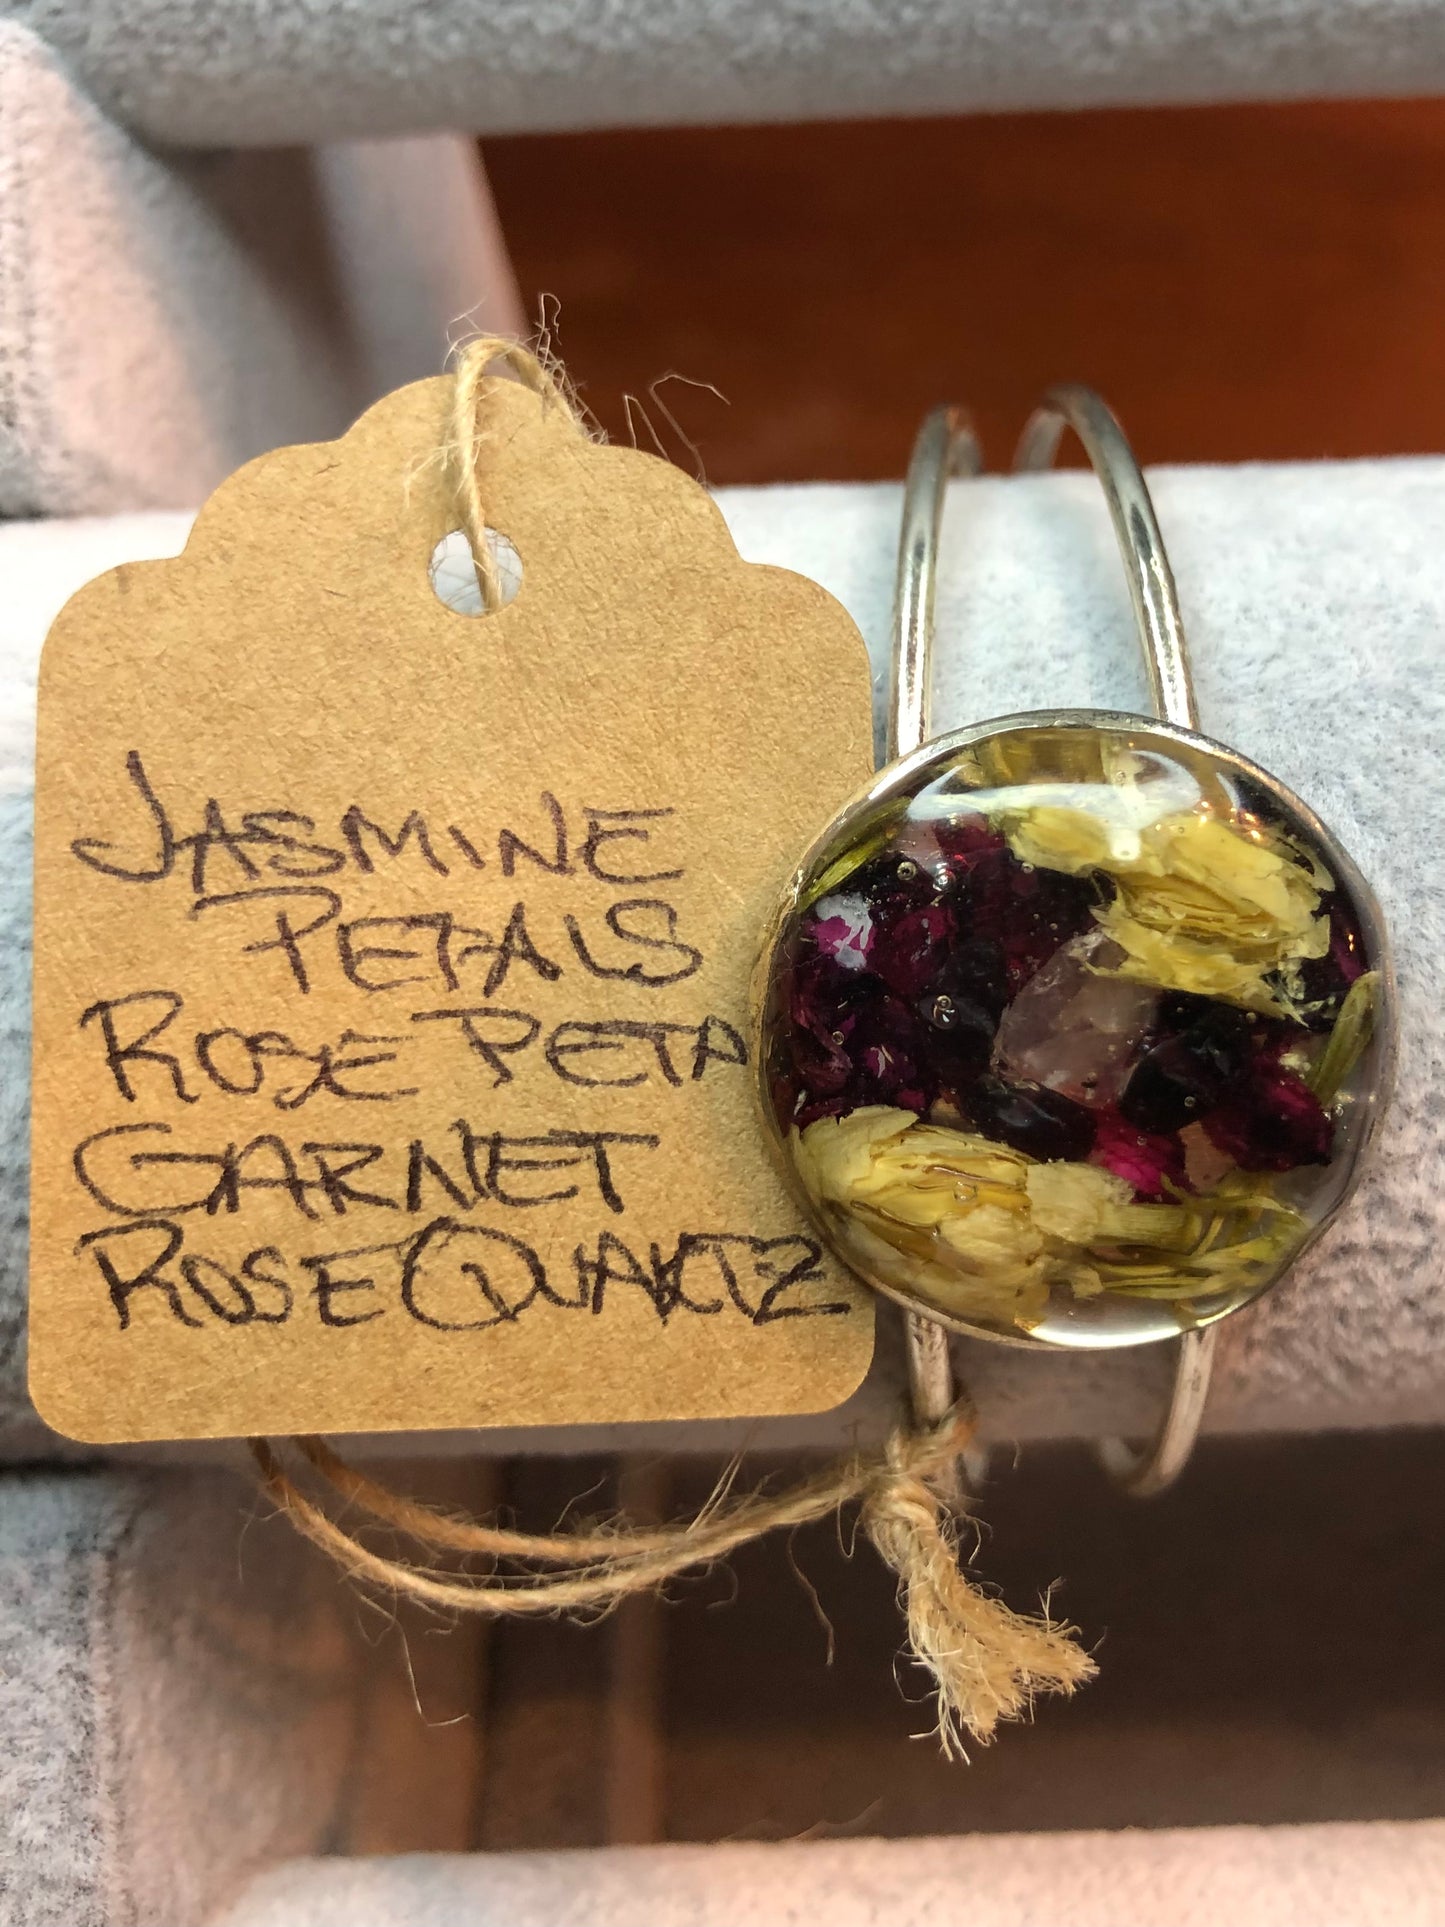 JASMINE
PETALS
ROSE PETA
GARNET
ROSE QUARTZ